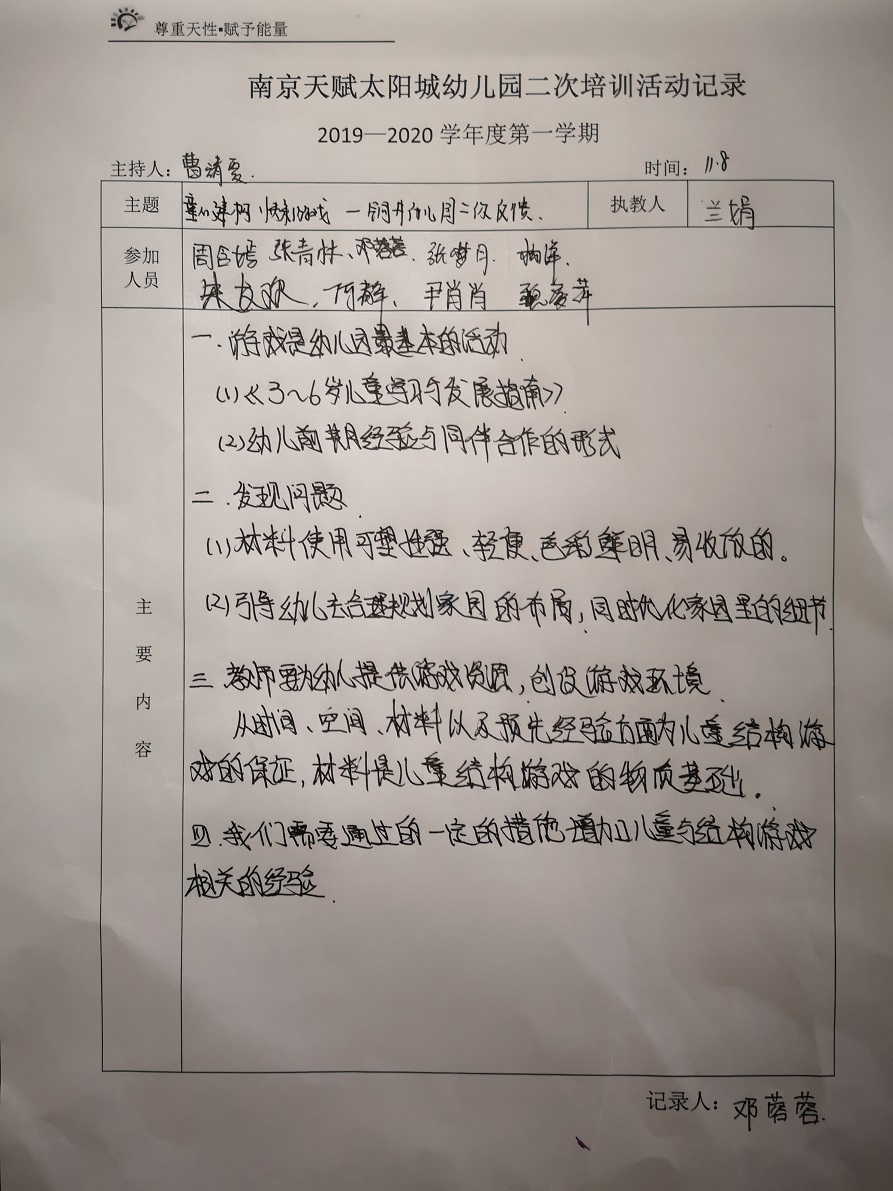 尊重天性•赋予能量
南京天赋太阳城幼儿园二次培训活动记录
2019—2020 学年度第一学期
主持人： 曹清夏. 时间： 11.8
主题 童心建构 幼儿园二次反馈. 执教人 兰娟
参加人员 张青林、邓蓉蓉. 张梦月.
何静、尹肖肖
主要内容
一.游戏是幼儿园最基本的活动.
(1)《3~6岁儿童学习与发展指南》
(2)幼儿前期经验与同伴合作的形式
二.发现问题.
(1)材料使用可塑性强、轻便、色彩鲜明、易收放的。
(2)引导幼儿去合理规划家园的布局,同时优化家园里的细节.
三.教师要为幼儿提供游戏资源,创设游戏环境.
从时间、空间、材料以及预先经验方面为儿童结构游
戏的保证,材料是儿童结构游戏的物质基础。
四.我们需要通过的一定的措施增加儿童与结构游戏
相关的经验.
记录人： 邓蓉蓉.